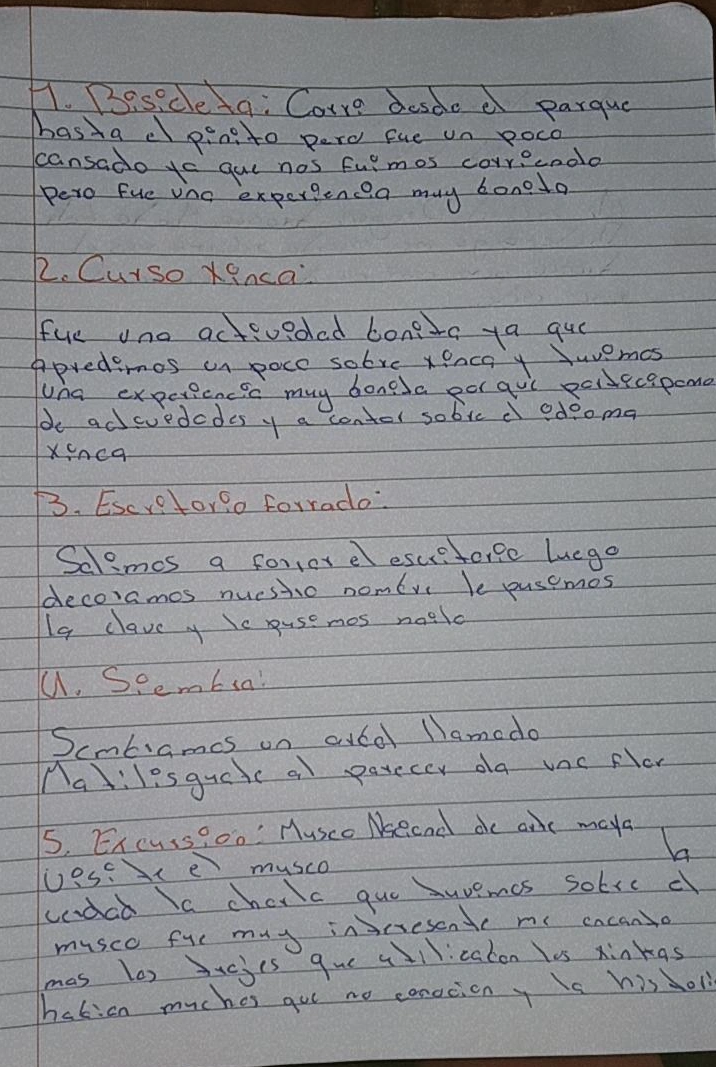 1. Bisicleta: Corri desde el parque
hasta el pinito pero fue un poco
cansado ya que nos fuimos corriendo
pero fue una experiencia muy bonita
2. Curso xinca:
fue una actividad bonita ya que
apredimos un poco sobre xinca y tuvimos
una experiencia muy bonita porque participamo
de actividades y a contar sobre el idioma
xinca
3. Escritorio forrado:
Salimos a forrar el escritorio luego
decoramos nuestro nombre le pusimos
la clave y le pusimos nailo
4. Siembra:
Sembramos un arbol llamado
Matilisguate al parecer da una flor
5. Excursion: Museo Nacional de arte maya
Visite el museo la
verdad la charla que tuvimos sobre el
museo fue muy interesante me encanto
mas los trajes que utilizaban los xinkas
habian muchos que no conocian y la histori